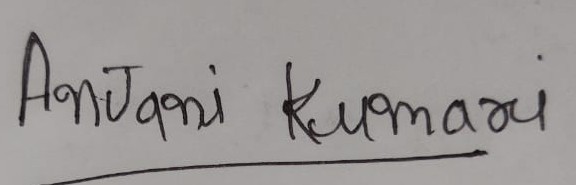 Anjani Kumari